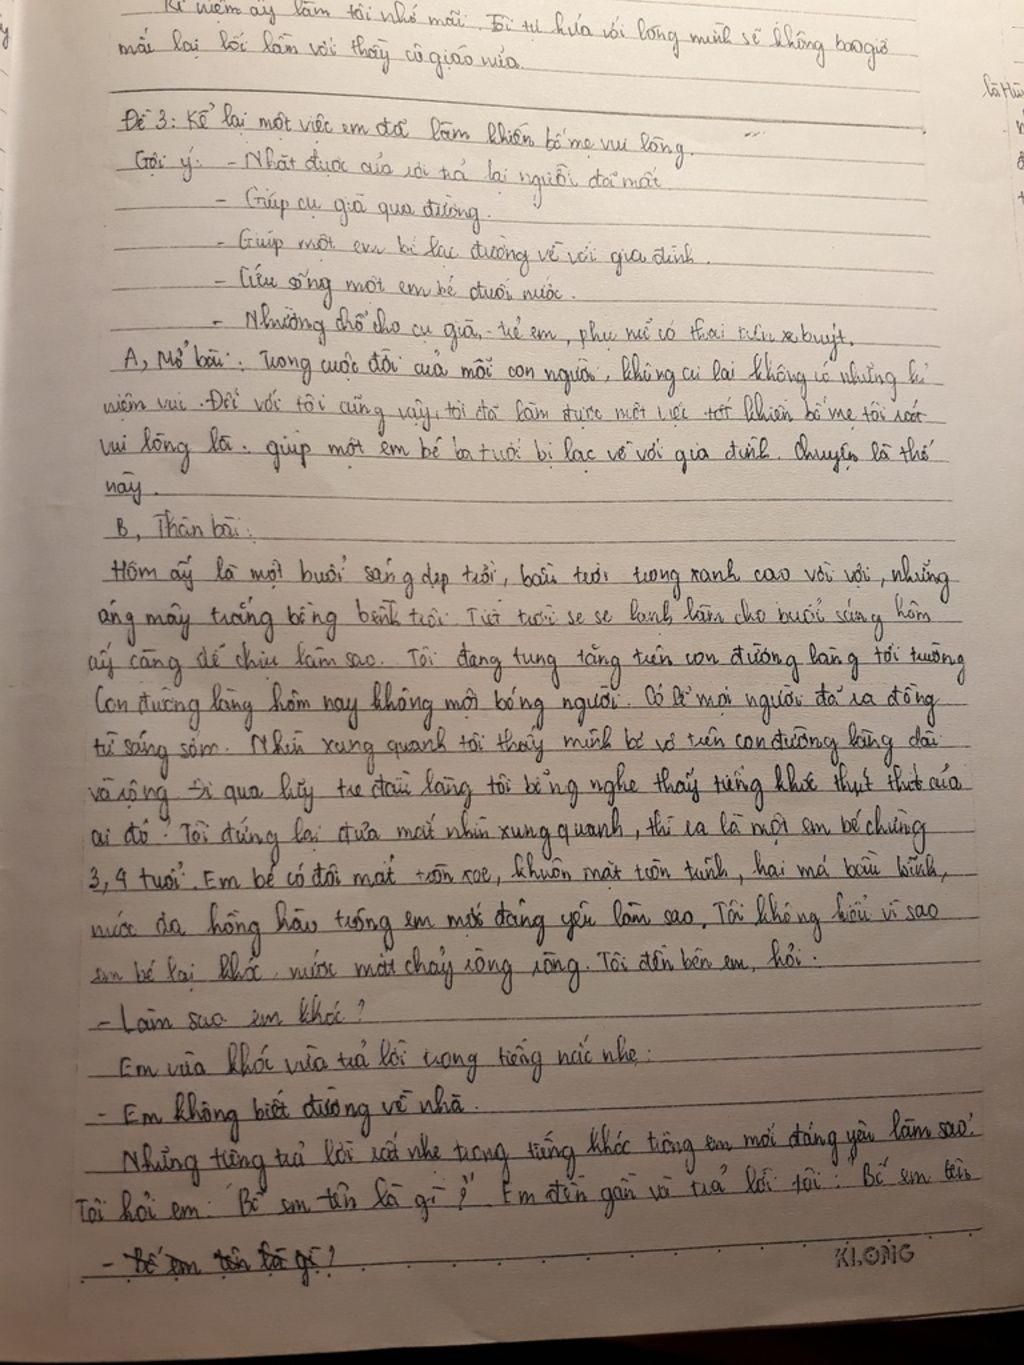 Kỉ niệm ấy làm tôi nhớ mãi. Tôi tự hứa với lòng mình sẽ không bao giờ
mắc lại lỗi lầm với thầy cô giáo nữa.
Đề 3: Kể lại một việc em đã làm khiến bố mẹ vui lòng.
Gợi ý: - Nhặt được của rơi trả lại người đã mất
- Giúp cụ già qua đường.
- Giúp một em bé lạc đường về với gia đình.
- Cứu sống một em bé đuối nước.
- Nhường chỗ cho cụ già, trẻ em, phụ nữ có thai trên xe buýt.
A, Mở bài: Trong cuộc đời của mỗi con người, không ai lại không có những kỉ
niệm vui. Đối với tôi cũng vậy, tôi đã làm được một việc tốt khiến bố mẹ tôi rất
vui lòng là: giúp một em bé ba tuổi bị lạc về với gia đình. Chuyện là thế
này.
B, Thân bài:
Hôm ấy là một buổi sáng đẹp trời, bầu trời trong xanh cao vời vợi, những
áng mây trắng bồng bềnh trôi. Tiết trời se se lạnh làm cho buổi sáng hôm
ấy càng dễ chịu làm sao. Tôi đang tung tăng trên con đường làng tới trường
Con đường làng hôm nay không một bóng người. Có lẽ mọi người đã ra đồng
từ sáng sớm. Nhìn xung quanh tôi thấy mình bé vô trên con đường làng dài
và rộng. Đi qua lũy tre đầu làng tôi bỗng nghe thấy tiếng khóc thút thít của
ai đó. Tôi đứng lại đưa mắt nhìn xung quanh, thì ra là một em bé chừng
3, 4 tuổi. Em bé có đôi mắt tròn xoe, khuôn mặt tròn trĩnh, hai má bầu bĩnh,
nước da hồng hào trông em mới đáng yêu làm sao. Tôi không hiểu vì sao
em bé lại khóc, nước mắt chảy ròng ròng. Tôi đến bên em, hỏi:
- Làm sao em khóc?
Em vừa khóc vừa trả lời trong tiếng nấc nhẹ:
- Em không biết đường về nhà.
Những tiếng trả lời rất nhẹ trong tiếng khóc trông em mới đáng yêu làm sao.
Tôi hỏi em: "Bố em tên là gì?" Em đến gần và trả lời tôi: "Bố em tên
- Bố em tên là gì?
KLONG